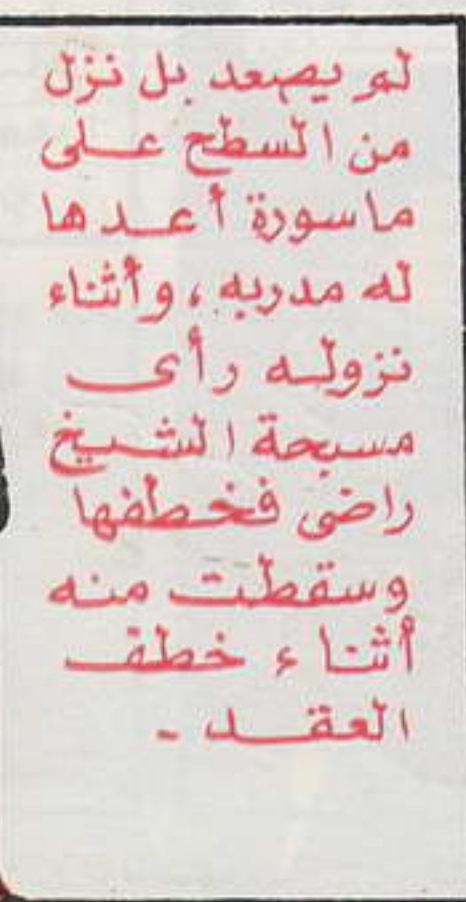 لم يصعد بل نزل
من السطح على
ماسورة أعدها
له مدربه ، وأثناء
نزوله رأى
مسبحة الشيخ
راضى فخطفها
وسقطت منه
أثناء خطف
العقد -